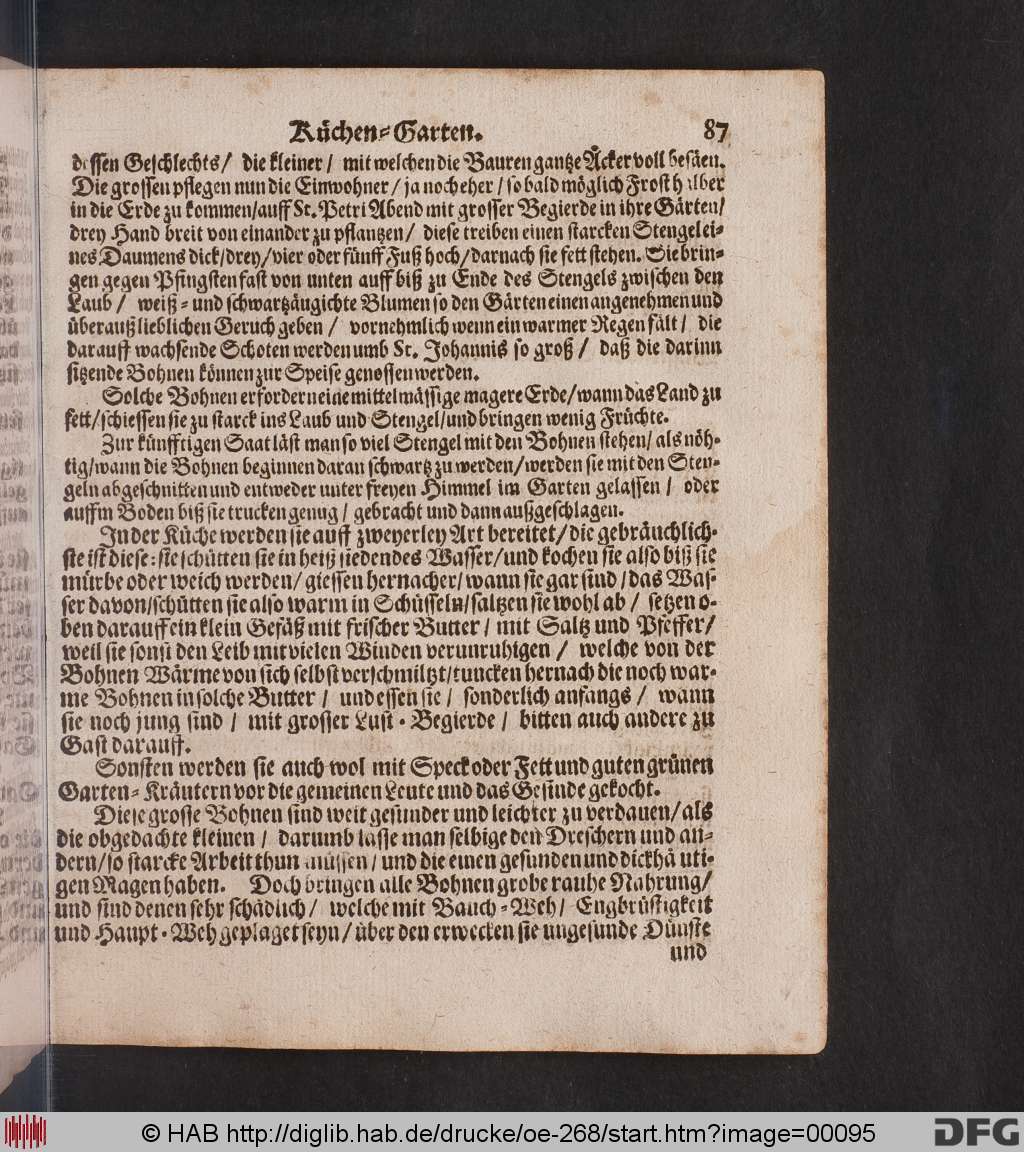 Küchen-Garten. 87
dessen Geschlechts/ die kleiner/ mit welchen die Bauren gantze Äcker voll besäen.
Die grossen pflegen nun die Einwohner/ ja noch eher/ so bald möglich Frost halber
in die Erde zu kommen/auff St. Petri Abend mit grosser Begierde in ihre Gärten/
drey Hand breit von einander zu pflantzen/ diese treiben einen starcken Stengel ei-
nes Daumens dick/drey/vier oder fünff Fuß hoch/darnach sie fett stehen. Sie brin-
gen gegen Pfingsten fast von unten auff biß zu Ende des Stengels zwischen den
Laub/ weiß- und schwartzäugichte Blumen so den Gärten einen angenehmen und
überauß lieblichen Geruch geben/ vornehmlich wenn ein warmer Regen fält/ die
darauff wachsende Schoten werden umb St. Johannis so groß/ daß die darinn
sitzende Bohnen können zur Speise genossen werden.
Solche Bohnen erfordern eine mittelmässige magere Erde/wann das Land zu
fett/schiessen sie zu starck ins Laub und Stengel/und bringen wenig Früchte.
Zur künfftigen Saat läst man so viel Stengel mit den Bohnen stehen/ als nöh-
tig/wann die Bohnen beginnen daran schwartz zu werden/werden sie mit den Sten-
geln abgeschnitten und entweder unter freyen Himmel im Garten gelassen/ oder
auffm Boden biß sie trucken genug/ gebracht und dann außgeschlagen.
In der Küche werden sie auff zweyerley Art bereitet/die gebräuchlich-
ste ist diese: sie schütten sie in heiß siedendes Wasser/und kochen sie also biß sie
mürbe oder weich werden/ giessen hernacher/wann sie gar sind/das Was-
ser davon/schütten sie also warm in Schüsseln/saltzen sie wohl ab/ setzen o-
ben darauff ein klein Gefäß mit frischer Butter/ mit Saltz und Pfeffer/
weil sie sonst den Leib mit vielen Winden verunruhigen/ welche von der
Bohnen Wärme von sich selbst verschmiltzt/tuncken hernach die noch war-
me Bohnen in solche Butter/ und essen sie/ sonderlich anfangs/ wann
sie noch jung sind/ mit grosser Lust-Begierde/ bitten auch andere zu
Gast darauff.
Sonsten werden sie auch wol mit Speck oder Fett und guten grünen
Garten-Kräutern vor die gemeinen Leute und das Gesinde gekocht.
Diese grosse Bohnen sind weit gesunder und leichter zu verdauen/als
die obgedachte kleinen/ darumb lasse man selbige den Dreschern und an-
dern/so starcke Arbeit thun müssen/und die einen gesunden und dickhäuti-
gen Magen haben. Doch bringen alle Bohnen grobe rauhe Nahrung/
und sind denen sehr schädlich/ welche mit Bauch-Weh/ Engbrüstigkeit
und Haupt-Weh geplaget seyn/über den erwecken sie ungesunde Dünste
und
© HAB http://diglib.hab.de/drucke/oe-268/start.htm?image=00095
DFG